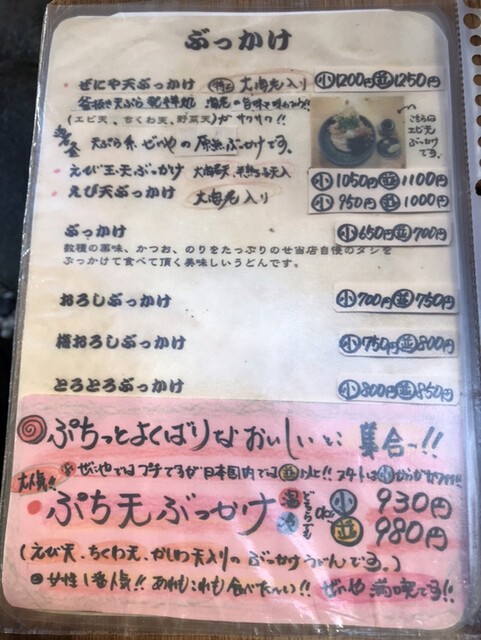 ぶっかけ
ぜにや天ぶっかけ 特上 大海老入り 小1200円 並1250円
(エビ天、ちくわ天、野菜天)が サクサク!!
こちらは エビ天 ぶっかけ です。
天ぷら系、ぜにやの 原点ぶっかけです。
えび玉天ぶっかけ 小1050円 並1100円
えび天ぶっかけ 大海老入り 小950円 並1000円
ぶっかけ 小650円 並700円
数種の薬味、かつお、のりをたっぷりのせ当店自慢のダシを
ぶっかけて食べて頂く美味しいうどんです。
おろしぶっかけ 小700円 並750円
梅おろしぶっかけ 小750円 並800円
とろとろぶっかけ 小800円 並850円
ぷちっとよくばりなおいしいとこ 集合〜!!
大人気!! ※ぜにやではプチですが日本国内では並以上!!
ぷち天ぶっかけ 温 冷 どちらでもOK. 小 930円
並 980円
(えび天、ちくわ天、かしわ天入りの ぶっかけうどんです。)
女性1番人気!! あれもこれも食べたーい!! ぜにや 満喫です!!